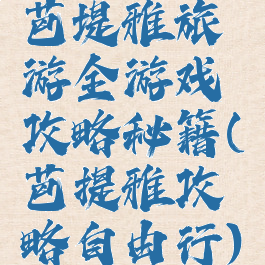 芭堤雅旅
游全游戏
攻略秘籍(
芭提雅攻
略自由行)